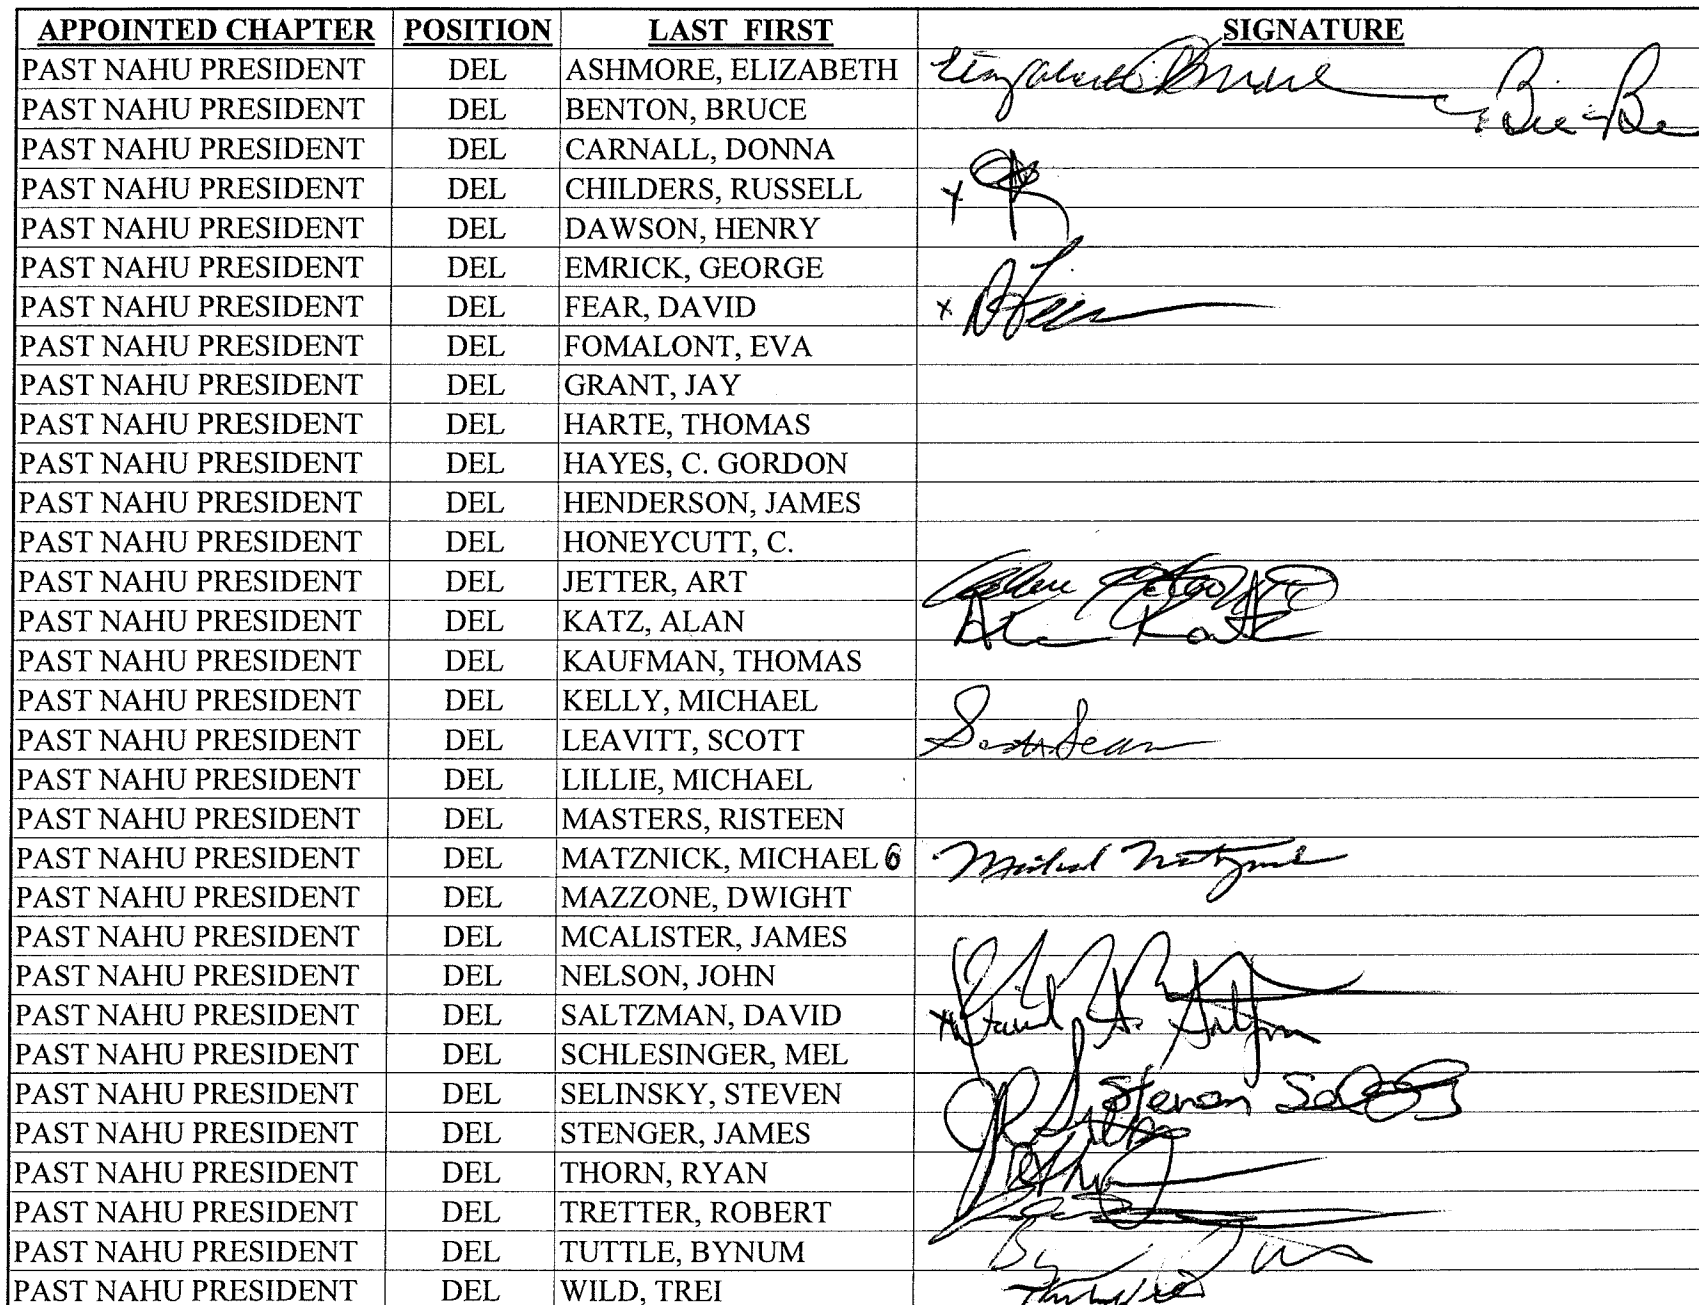 APPOINTED CHAPTER POSITION LAST FIRST SIGNATURE
PAST NAHU PRESIDENT DEL ASHMORE, ELIZABETH Elizabeth Ashmore
PAST NAHU PRESIDENT DEL BENTON, BRUCE
PAST NAHU PRESIDENT DEL CARNALL, DONNA
PAST NAHU PRESIDENT DEL CHILDERS, RUSSELL x
PAST NAHU PRESIDENT DEL DAWSON, HENRY
PAST NAHU PRESIDENT DEL EMRICK, GEORGE
PAST NAHU PRESIDENT DEL FEAR, DAVID x
PAST NAHU PRESIDENT DEL FOMALONT, EVA
PAST NAHU PRESIDENT DEL GRANT, JAY
PAST NAHU PRESIDENT DEL HARTE, THOMAS
PAST NAHU PRESIDENT DEL HAYES, C. GORDON
PAST NAHU PRESIDENT DEL HENDERSON, JAMES
PAST NAHU PRESIDENT DEL HONEYCUTT, C.
PAST NAHU PRESIDENT DEL JETTER, ART
PAST NAHU PRESIDENT DEL KATZ, ALAN Alan Katz
PAST NAHU PRESIDENT DEL KAUFMAN, THOMAS
PAST NAHU PRESIDENT DEL KELLY, MICHAEL
PAST NAHU PRESIDENT DEL LEAVITT, SCOTT
PAST NAHU PRESIDENT DEL LILLIE, MICHAEL
PAST NAHU PRESIDENT DEL MASTERS, RISTEEN
PAST NAHU PRESIDENT DEL MATZNICK, MICHAEL 6 Michael Matznick
PAST NAHU PRESIDENT DEL MAZZONE, DWIGHT
PAST NAHU PRESIDENT DEL MCALISTER, JAMES
PAST NAHU PRESIDENT DEL NELSON, JOHN
PAST NAHU PRESIDENT DEL SALTZMAN, DAVID x David A. Saltzman
PAST NAHU PRESIDENT DEL SCHLESINGER, MEL
PAST NAHU PRESIDENT DEL SELINSKY, STEVEN Steven Selinsky
PAST NAHU PRESIDENT DEL STENGER, JAMES
PAST NAHU PRESIDENT DEL THORN, RYAN
PAST NAHU PRESIDENT DEL TRETTER, ROBERT
PAST NAHU PRESIDENT DEL TUTTLE, BYNUM
PAST NAHU PRESIDENT DEL WILD, TREI